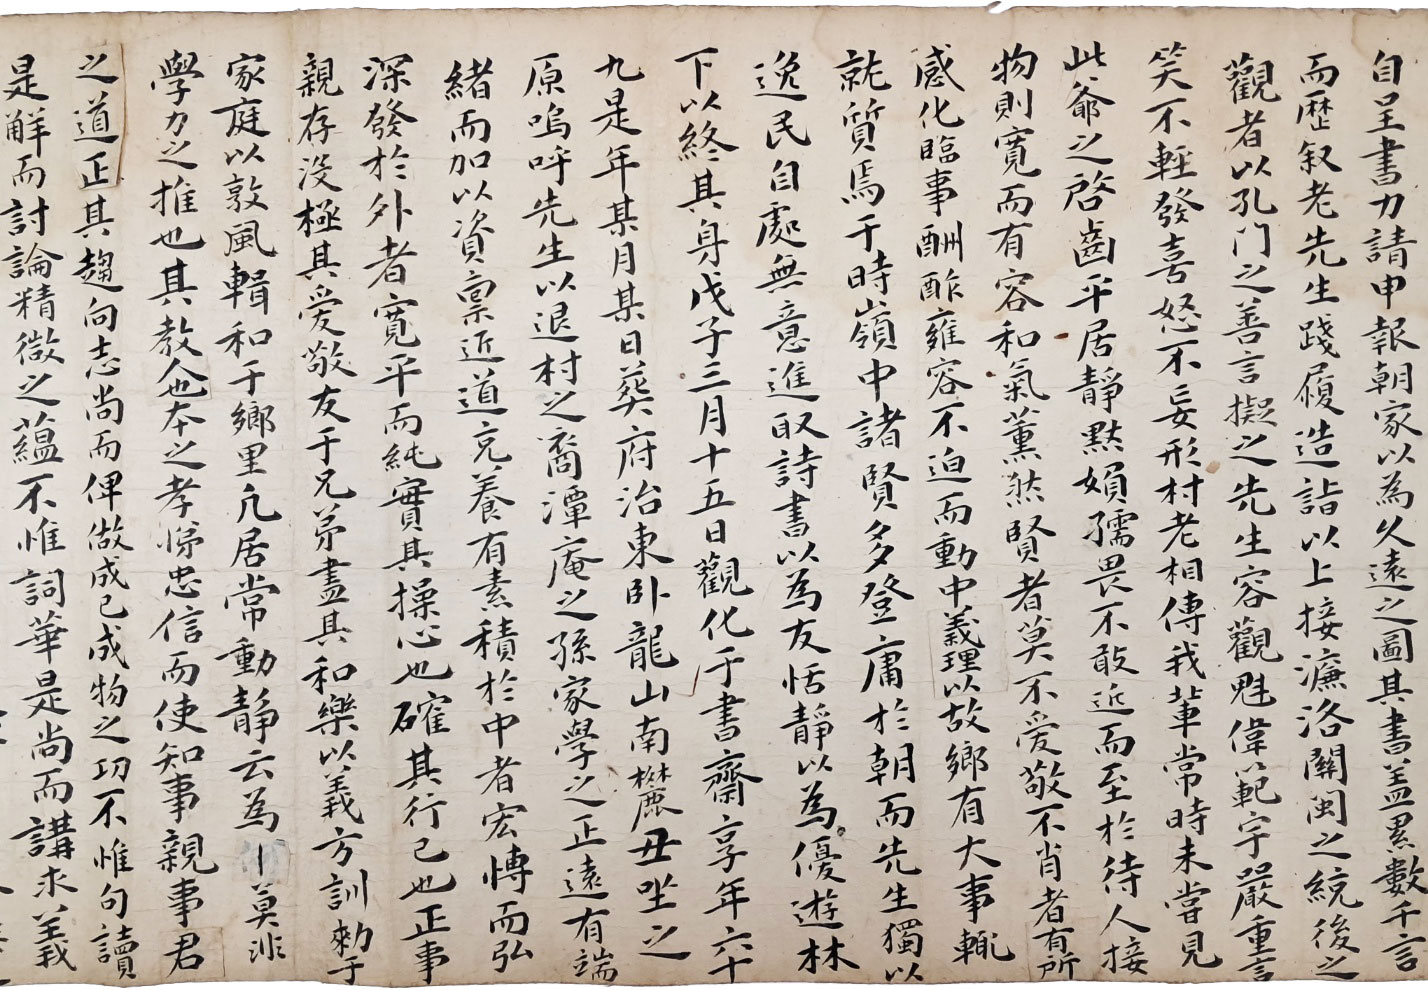 自呈書力請申報朝家以為久遠之圖其書蓋累數千言
而歷叙老先生踐履造詣以上接濂洛關閩之統後之
觀者以孔门之善言擬之先生容觀魁偉範宇嚴重言
笑不輕發喜怒不妄形村老相傳我輩常時未嘗見
此爺之啓齒平居靜默媍孺畏不敢近而至於待人接
物則寬而有容和氣薰然賢者莫不爱敬不肖者有所
感化臨事酬酢雍容不迫而動中義理以故鄉有大事輒
就質焉于時嶺中諸賢多登庸於朝而先生獨以
逸民自處無意進取詩書以為友恬靜以為優遊林
下以終其身戊子三月十五日觀化于書齋享年六十
九是年某月某日葬府治東卧龍山南麓丑坐之
原嗚呼先生以退村之裔潭庵之孫家學之正遠有端
緒而加以資禀近道充養有素積於中者宏博而弘
深發於外者寬平而純實其操心也確其行己也正事
親存沒極其爱敬友于兄弟盡其和樂以義方訓勑于
家庭以敦風輯和于鄉里凡居常動靜云為莫非
學力之推也其教也本之孝悌忠信而使知事親事君
之道正其趨向志尚而俾做成己成物之功不惟句讀
是解而討論精微之蘊不惟詞華是尚而講求義